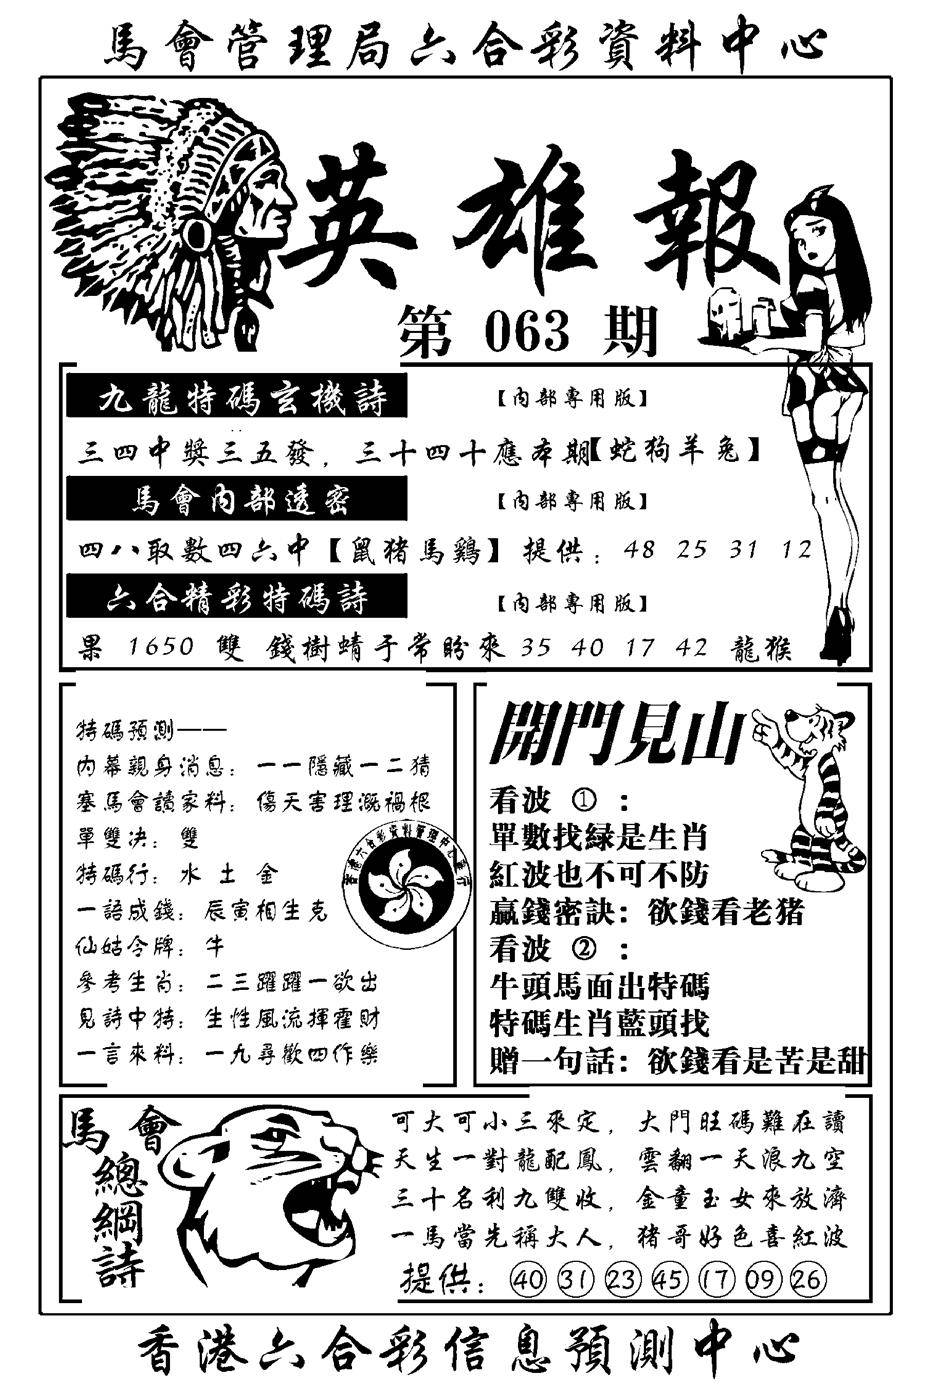 馬會管理局六合彩資料中心
英雄報
第 063 期
九龍特碼玄機詩
【內部專用版】
三四中獎三五發，三十四十應本期【蛇狗羊兔】
馬會內部透密
【內部專用版】
四八取數四六中【鼠猪馬鷄】提供：48 25 31 12
六合精彩特碼詩
【內部專用版】
果 1650 雙 錢樹蜻子常盼來 35 40 17 42 龍猴
特碼預測——
內幕親身消息：一一隱藏一二猜
塞馬會讀家料：傷天害理溉禍根
單雙决：雙
特碼行：水 土 金
一語成錢：辰寅相生克
仙姑令牌：牛
參考生肖：二三躍躍一欲出
見詩中特：生性風流揮霍財
一言來料：一九尋歡四作樂
香港六合彩資料管理中心發行
開門見山
看波 ①：
單數找緑是生肖
紅波也不可不防
贏錢密訣：欲錢看老猪
看波 ②：
牛頭馬面出特碼
特碼生肖藍頭找
贈一句話：欲錢看是苦是甜
馬會
總綱詩
可大可小三來定，大門旺碼難在讀
天生一對龍配鳳，雲翻一天浪九空
三十名利九雙收，金童玉女來放濟
一馬當先稱大人，猪哥好色喜紅波
提供：㊵ ㉛ ㉓ ㊺ ⑰ 09 ㉖
香港六合彩信息預測中心